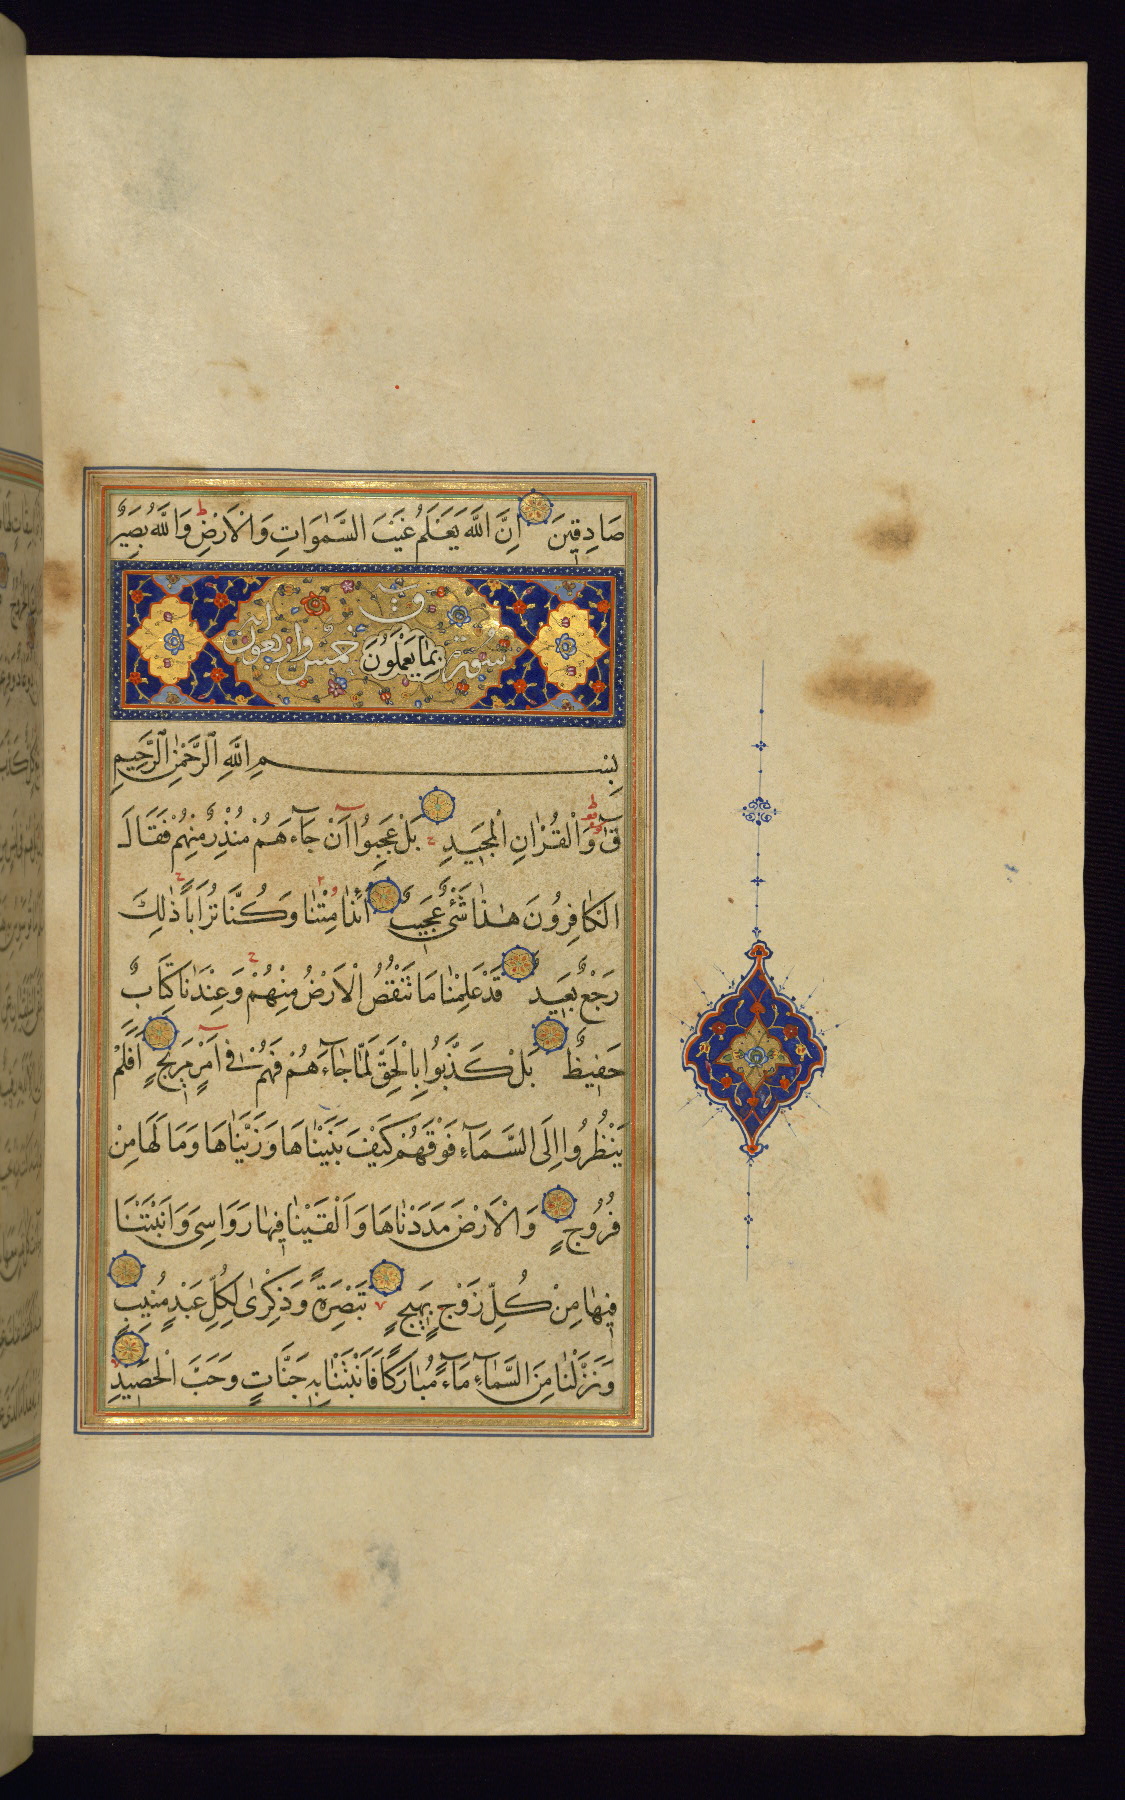 صَادِقِينَ اِنَّ اللَّهَ يَعْلَمُ غَيْبَ السَّمٰوَاتِ وَالْاَرْضِ وَاللَّهُ بَصِيرٌ
سورة ق
بِمَا يَعْمَلُونَ
خمس واربعون آية
بِسْمِ اللَّهِ الرَّحْمٰنِ الرَّحِيمِ
قٓ وَالْقُرْاٰنِ الْمَجِيدِ بَلْ عَجِبُوا اَنْ جَآءَهُمْ مُنْذِرٌ مِنْهُمْ فَقَالَ
الْكَافِرُونَ هٰذَا شَئٌ عَجِيبٌ ءَاِذَا مِتْنَا وَكُنَّا تُرَاباً ذٰلِكَ
رَجْعٌ بَعِيدٌ قَدْ عَلِمْنَا مَا تَنْقُصُ الْاَرْضُ مِنْهُمْ وَعِنْدَنَا كِتَابٌ
حَفِيظٌ بَلْ كَذَّبُوا بِالْحَقِّ لَمَّا جَآءَهُمْ فَهُمْ فِي اَمْرٍ مَرِيجٍ اَفَلَمْ
يَنْظُرُوا اِلَى السَّمَآءِ فَوْقَهُمْ كَيْفَ بَنَيْنَاهَا وَزَيَّنَّاهَا وَمَا لَهَا مِنْ
فُرُوجٍ وَالْاَرْضَ مَدَدْنَاهَا وَاَلْقَيْنَا فِيهَا رَوَاسِىَ وَاَنْبَتْنَا
فِيهَا مِنْ كُلِّ زَوْجٍ بَهِيجٍ تَبْصِرَةً وَذِكْرٰى لِكُلِّ عَبْدٍ مُنِيبٍ
وَنَزَّلْنَا مِنَ السَّمَآءِ مَآءً مُبَارَكًا فَاَنْبَتْنَا بِهِ جَنَّاتٍ وَحَبَّ الْحَصِيدِ